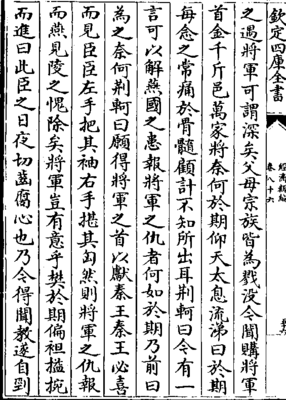 欽定四庫全書
卷八十六
之遇將軍可謂深矣父母宗族皆為戮没今聞購將軍
首金千斤邑萬家將奈何於期仰天太息流涕曰於期
每念之常痛於骨髓顧計不知所出耳荆軻曰今有一
言可以解燕國之患報將軍之仇者何如於期乃前曰
為之奈何荆軻曰願得將軍之首以獻秦王秦王必喜
而見臣臣左手把其袖右手揕其匈然則將軍之仇報
而燕見陵之愧除矣將軍豈有意乎樊於期偏袒搤捥
而進曰此臣之日夜切齒腐心也乃今得聞教遂自剄